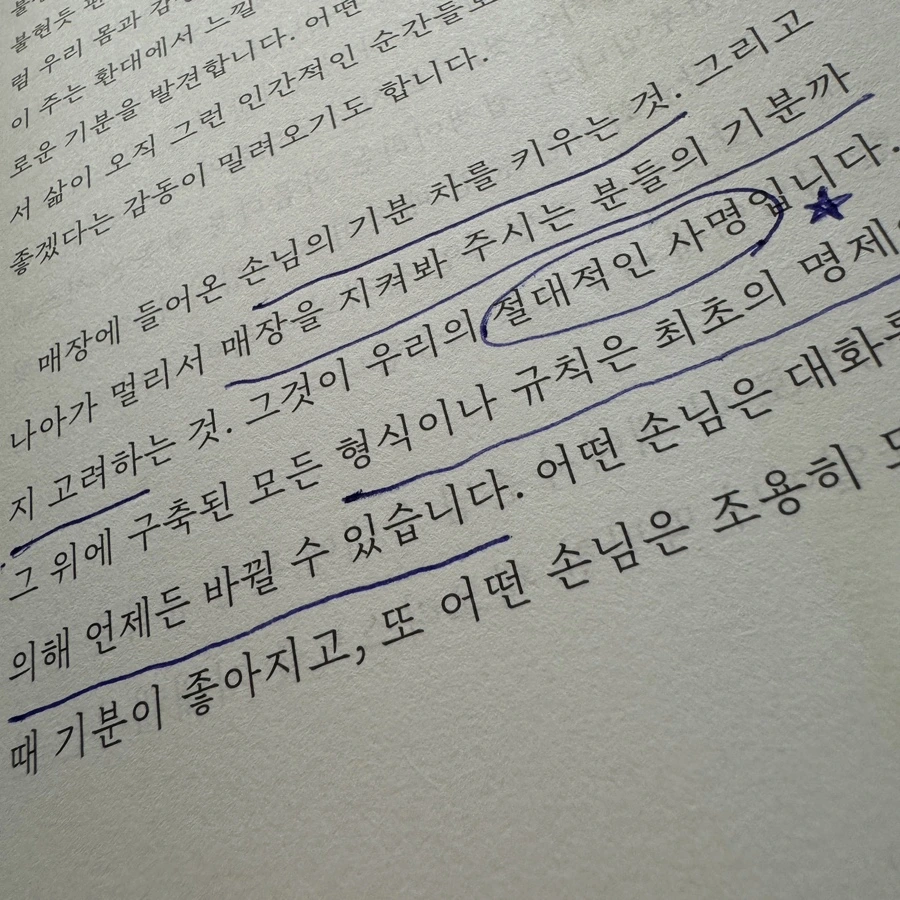 불현듯
럼 우리 몸과
이 주는 환대에서 느낄
로운 기분을 발견합니다. 어떤
서 삶이 오직 그런 인간적인 순간들로
좋겠다는 감동이 밀려오기도 합니다.
매장에 들어온 손님의 기분 차를 키우는 것. 그리고
나아가 멀리서 매장을 지켜봐 주시는 분들의 기분까
지 고려하는 것. 그것이 우리의 절대적인 사명입니다.
그 위에 구축된 모든 형식이나 규칙은 최초의 명제에
의해 언제든 바뀔 수 있습니다. 어떤 손님은 대화를
때 기분이 좋아지고, 또 어떤 손님은 조용히